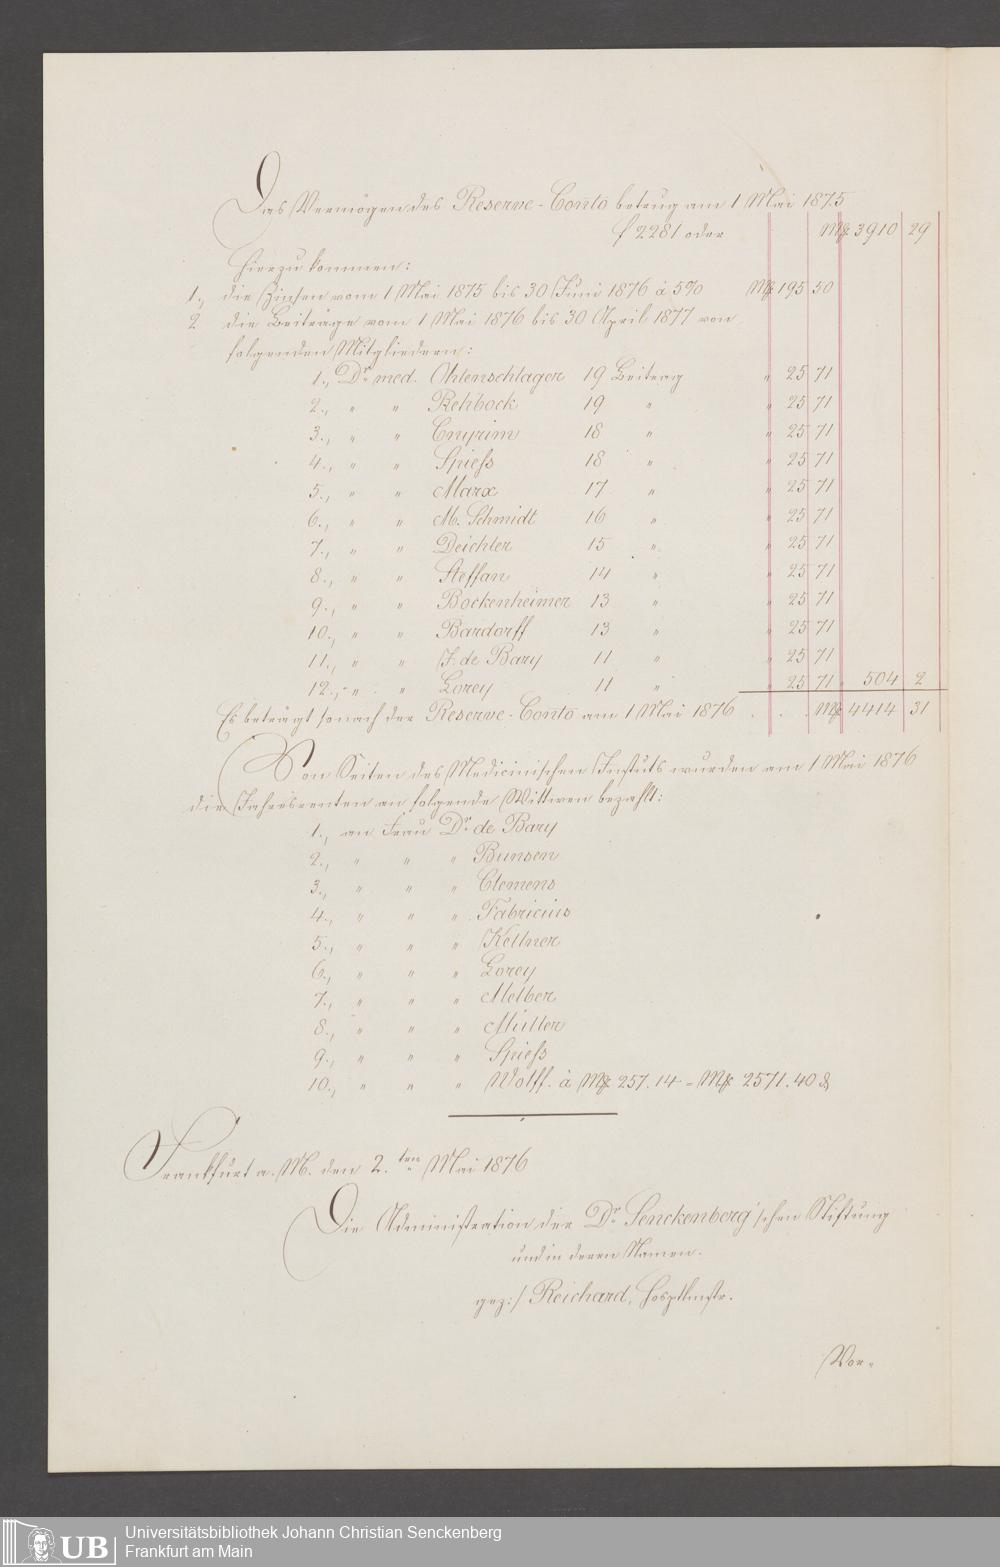 Das Vermögen des Reserve-Conto betrug am 1 Mai 1875
f 2281 oder M 3910 29
Hierzu kommen:
1., die Zinsen vom 1 Mai 1875 bis 30 Juni 1876 à 5% M 195 50
2 die Beiträge vom 1 Mai 1876 bis 30 April 1877 von
folgenden Mitgliedern:
1., Dr. med. Ohlenschlager 19 Beitrag " 25 71
2., " " Rehbock 19 " " 25 71
3., " " Cnyrim 18 " " 25 71
4., " " Spiess 18 " " 25 71
5., " " Marx 17 " " 25 71
6., " " M. Schmidt 16 " " 25 71
7., " " Deichler 15 " " 25 71
8., " " Steffan 14 " " 25 71
9., " " Bockenheimer 13 " " 25 71
10., " " Bardorff 13 " " 25 71
11., " " J. de Bary 11 " " 25 71
12., " " Lorey 11 " " 25 71 " 504 2
Es beträgt sonach der Reserve-Conto am 1 Mai 1876 . . . M 4414 31
Von Seiten des Medicinischen Instituts wurden am 1 Mai 1876
die Jahresrenten an folgende Wittwen bezahlt:
1., an Frau Dr. de Bary
2., " " " Bunsen
3., " " " Clemens
4., " " " Fabricius
5., " " " Kellner
6., " " " Lorey
7., " " " Melber
8., " " " Müller
9., " " " Spiess
10., " " " Wolff. à M 257.14 = M 2571.40 ₰
Frankfurt a. M. den 2.ten Mai 1876
Die Administration der Dr. Senckenberg'schen Stiftung
und in deren Namen.
gez:/ Reichard, Hosptlmstr.
Vor-
Universitätsbibliothek Johann Christian Senckenberg
UB Frankfurt am Main